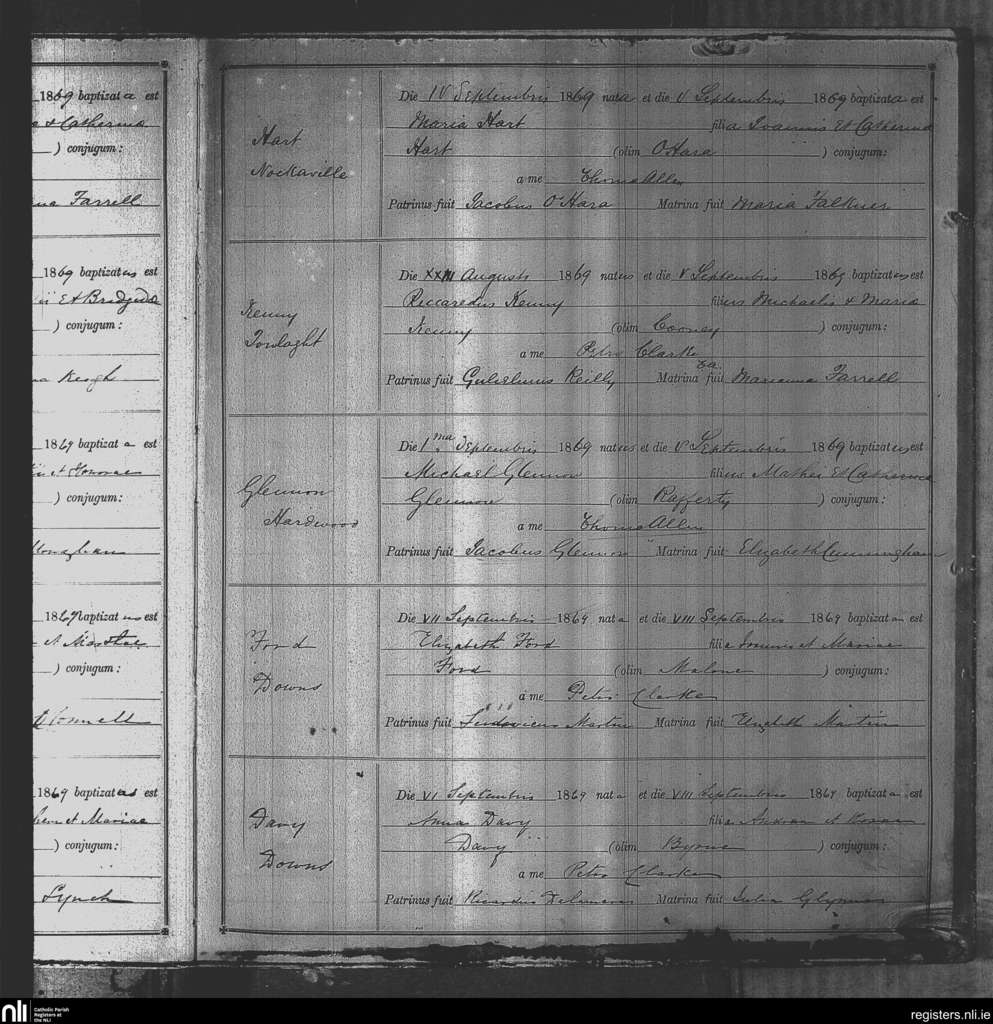 1869 baptizata est
et Catherina
) conjugum:
Farrell
1869 baptizatus est
Et Bridgida
) conjugum:
Keogh
1869 baptizat a est
et Honorae
) conjugum:
Monaghan
1869 baptizat us est
et
) conjugum:
1869 baptizatus est
et Mariae
) conjugum:
Lynch
Hart
Nockaville
Die IV Septembris 1869 nata et die V Septembris 1869 baptizata est
Maria Hart filia Joannis Et Catherina
Hart (olim O'Hara ) conjugum:
a me Thoma Allen
Patrinus fuit Jacobus O'Hara Matrina fuit Maria Falkner
Kenny
Towlaght
Die Augusti 1869 natus et die V Septembris 1869 baptizatus est
Riccaredus Kenny filius Michaelis & Maria
Kenny (olim Cooney ) conjugum:
a me Petro Clarke
Patrinus fuit Gulielmus Reilly Matrina fuit Marianna Farrell
Glennon
Hardwood
Die 1ma Septembris 1869 natus et die V Septembris 1869 baptizatus est
Michael Glennon filius Mathei Et Catherina
Glennon (olim Rafferty ) conjugum:
a me Thoma Allen
Patrinus fuit Jacobus Glennon Matrina fuit Elizabeth Cunningham
Ford
Downs
Die VII Septembris 1869 nat a et die VIII Septembris 1869 baptizat a est
Elizabeth Ford filia Joannis et Mariae
Ford (olim Malone ) conjugum:
a me Petro Clarke
Patrinus fuit Ludovicus Martin Matrina fuit Elizabeth Martin
Davy
Downs
Die VI Septembris 1869 nat a et die VIII Septembris 1869 baptizat a est
Annas Davy filia Andreae et
Davy (olim Byrne ) conjugum:
a me Petro Clarke
Patrinus fuit Ricardus Matrina fuit Julia Glynn
nli Catholic Parish
Registers at
the NLI
registers.nli.ie